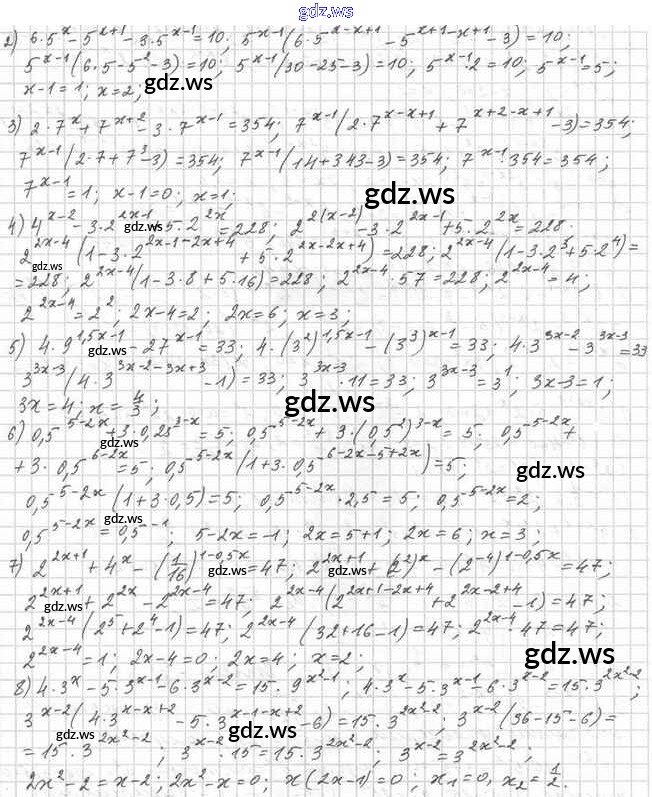 gdz.ws
2) 6·5^x - 5^(x+1) - 3·5^(x-1) = 10; 5^(x-1)(6·5^(x-x+1) - 5^(x+1-x+1) - 3) = 10;
5^(x-1)(6·5 - 5^2 - 3) = 10; 5^(x-1)(30-25-3) = 10; 5^(x-1)·2 = 10; 5^(x-1) = 5;
x-1 = 1; x = 2; gdz.ws
3) 2·7^x + 7^(x+2) - 3·7^(x-1) = 354; 7^(x-1)(2·7^(x-x+1) + 7^(x+2-x+1) - 3) = 354;
7^(x-1)(2·7 + 7^3 - 3) = 354; 7^(x-1)(14+343-3) = 354; 7^(x-1)·354 = 354;
7^(x-1) = 1; x-1 = 0; x = 1; gdz.ws
4) 4^(x-2) - 3·2^(2x-1) + 5·2^(2x) = 228; 2^(2(x-2)) - 3·2^(2x-1) + 5·2^(2x) = 228. gdz.ws
2^(2x-4)(1 - 3·2^(2x-1-2x+4) + 5·2^(2x-2x+4)) = 228; 2^(2x-4)(1 - 3·2^3 + 5·2^4) =
gdz.ws = 228; 2^(2x-4)(1 - 3·8 + 5·16) = 228; 2^(2x-4)·57 = 228; 2^(2x-4) = 4;
2^(2x-4) = 2^2; 2x-4 = 2; 2x = 6; x = 3;
5) 4·9^(1,5x-1) - 27^(x-1) = 33; 4·(3^2)^(1,5x-1) - (3^3)^(x-1) = 33; 4·3^(3x-2) - 3^(3x-3) = 33 gdz.ws
3^(3x-3)(4·3^(3x-2-3x+3) - 1) = 33; 3^(3x-3)·11 = 33; 3^(3x-3) = 3^1; 3x-3 = 1;
3x = 4; x = 4/3; gdz.ws
6) 0,5^(5-2x) + 3·0,25^(3-x) = 5; 0,5^(5-2x) + 3·(0,5^2)^(3-x) = 5; 0,5^(5-2x) + gdz.ws
+ 3·0,5^(6-2x) = 5; 0,5^(5-2x)(1 + 3·0,5^(6-2x-5+2x)) = 5; gdz.ws
0,5^(5-2x)(1 + 3·0,5) = 5; 0,5^(5-2x)·2,5 = 5; 0,5^(5-2x) = 2;
0,5^(5-2x) = 0,5^(-1); 5-2x = -1; 2x = 5+1; 2x = 6; x = 3; gdz.ws
7) 2^(2x+1) + 4^x - (1/16)^(1-0,5x) = 47; 2^(2x+1) + (2^2)^x - (2^(-4))^(1-0,5x) = 47; gdz.ws gdz.ws
2^(2x+1) + 2^(2x) - 2^(2x-4) = 47; 2^(2x-4)(2^(2x+1-2x+4) + 2^(2x-2x+4) - 1) = 47; gdz.ws gdz.ws
2^(2x-4)(2^5 + 2^4 - 1) = 47; 2^(2x-4)(32+16-1) = 47; 2^(2x-4)·47 = 47;
2^(2x-4) = 1; 2x-4 = 0; 2x = 4; x = 2; gdz.ws
8) 4·3^x - 5·3^(x-1) - 6·3^(x-2) = 15·9^(x^2-1); 4·3^x - 5·3^(x-1) - 6·3^(x-2) = 15·3^(2x^2-2);
3^(x-2)(4·3^(x-x+2) - 5·3^(x-1-x+2) - 6) = 15·3^(2x^2-2); 3^(x-2)(36-15-6) = gdz.ws gdz.ws
= 15·3^(2x^2-2); 3^(x-2)·15 = 15·3^(2x^2-2); 3^(x-2) = 3^(2x^2-2);
2x^2 - 2 = x - 2; 2x^2 - x = 0; x(2x-1) = 0; x₁ = 0, x₂ = 1/2.